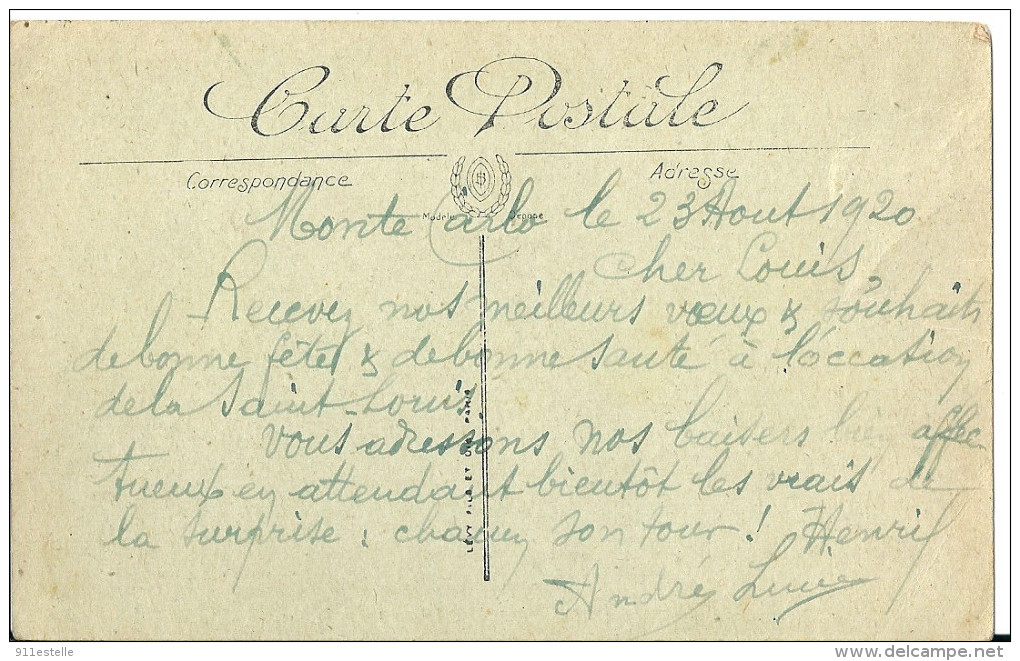 Carte Postale
Correspondance
Adresse
Modèle Déposé
Monte Carlo le 23 Aout 1920
Cher Louis,
Recevez nos meilleurs vœux & souhaits
de bonne fête & de bonne santé à l'occation
de la Saint-Louis,
vous adressons nos baisers bien affec-
tueux en attendant bientôt les vrais de
la surprise, chacun son tour! Henri
André Lucie
LÉVY FILS ET Cie, PARIS
911estelle
www.delcampe.net